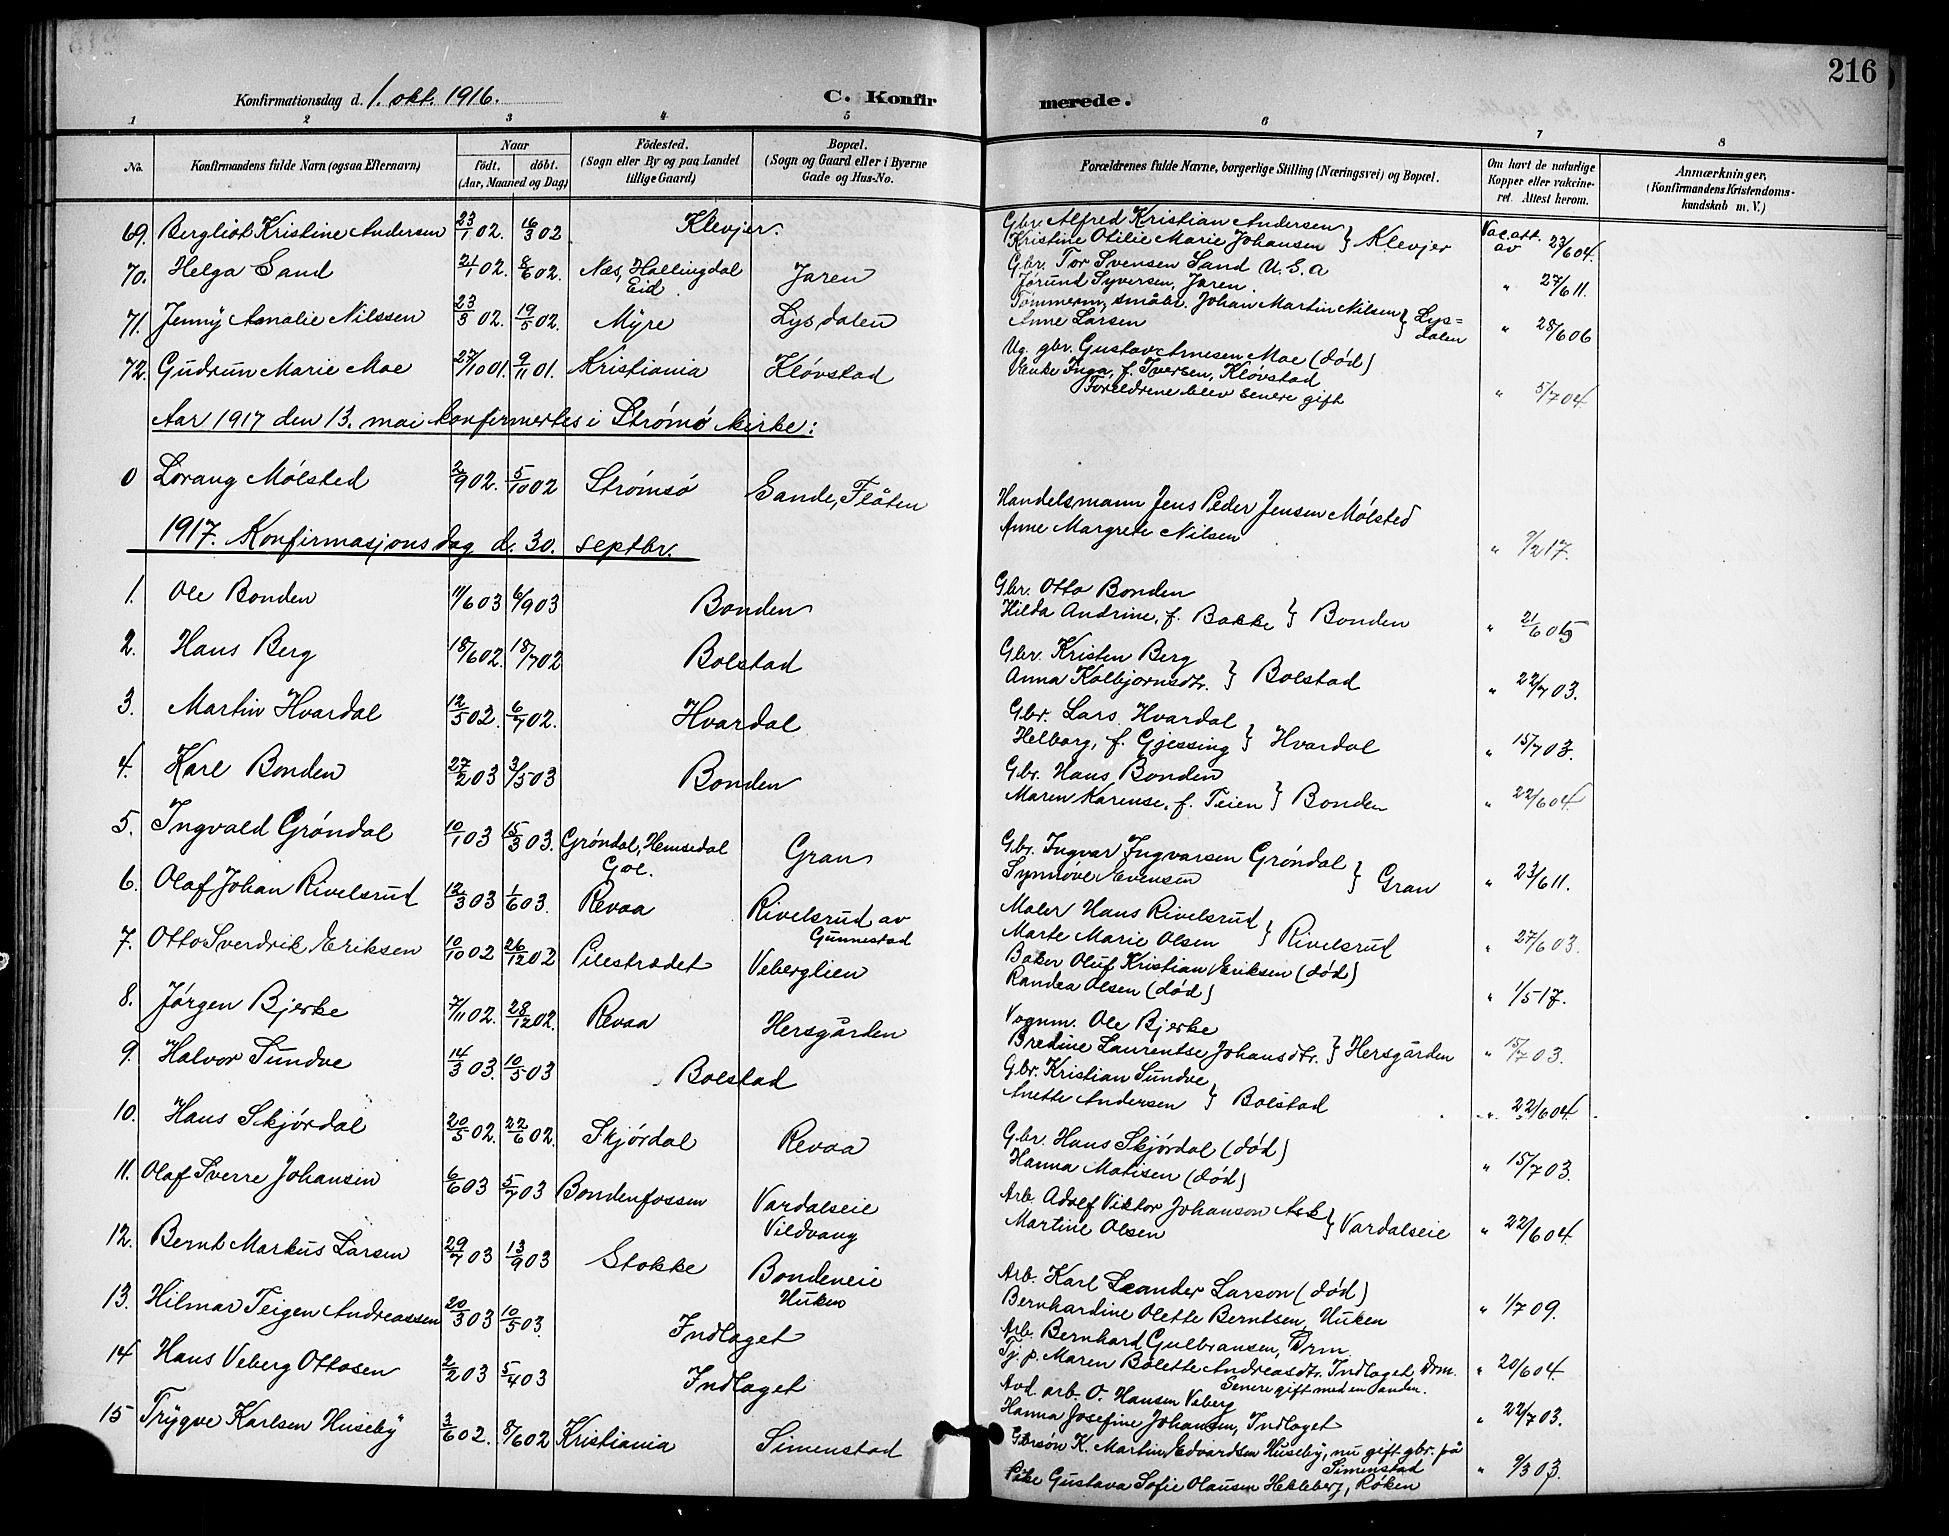 216
Konfirmationsdag d. 1. okt. 1916.
C. Konfirmerede.
1 2 3 4 5 6 7 8
No. Konfirmandens fulde Navn (ogsaa Efternavn) Naar født. døbt. (Aar, Maaned og Dag) Fødested. (Sogn eller By og paa Landet tillige Gaard) Bopæl. (Sogn og Gaard eller i Byerne Gade og Hus-No. Forældrenes fulde Navne, borgerlige Stilling (Næringsvei) og Bopæl. Om havt de naturlige Kopper eller vakcineret. Attest herom. Anmærkninger, (Konfirmandens Kristendomskundskab m. V.)
69. Bergliot Kristine Andersen 23/1 02. 16/3 02 Klevjer. Gbr. Alfred Kristian Andersen
Kristine Otilie Marie Johansen } Klevjer Vac. att. av 23/6 04.
70. Helga Sand 21/1 02. 8/6 02. Næs, Hallingdal Eid. Jaren Gbr. Tor Svensen Sand U.S.a
Jørund Syversen, Jaren. " 27/6 11.
71. Jenny Amalie Nilssen 23/3 02. 19/5 02. Myre Lysdalen Tømmerm., småbr. Johan Martin Nilsen
Anne Larsen } Lysdalen " 28/6 06
72. Gudrun Marie Moe 27/10 01. 9/11 01. Kristiania Kløvstad Ug. gbr. Gustav Arnesen Moe (død)
Enke Inga, f. Iversen, Kløvstad
Forældrene blev senere gift " 5/7 04
Aar 1917 den 13. mai konfirmertes i Strømsø kirke:
0 Lorang Mølsted 2/9 02. 5/10 02 Strømsø Sande, Flåten Handelsmann Jens Peder Jensen Mølsted
Anne Margrete Nilsen " 9/2 17.
1917. Konfirmasjonsdag d. 30. septbr.
1. Ole Bonden 11/6 03 6/9 03 Bonden Gbr. Otto Bonden
Hilda Andrine, f. Bakke } Bonden " 21/6 05
2. Hans Berg 18/6 02. 18/7 02 Bolstad Gbr. Kristen Berg
Anna Kolbjørnsdtr. } Bolstad " 22/7 03.
3. Martin Hvardal 12/5 02. 6/7 02. Hvardal Gbr. Lars Hvardal
Helborg, f. Gjessing } Hvardal " 15/7 03.
4. Karl Bonden 27/2 03 3/5 03 Bonden Gbr. Hans Bonden
Maren Karense, f. Teien } Bonden " 22/6 04
5. Ingvald Grøndal 10/1 03 15/3 03. Grøndal, Hemsedal Gol. Gran Gbr. Ingvar Ingvarsen Grøndal
Synnøve Evensen } Gran " 23/6 11.
6. Olaf Johan Rivelsrud 12/3 03 1/6 03. Revaa Rivelsrud av Gunnestad Maler Hans Rivelsrud
Marte Marie Olsen } Rivelsrud " 27/6 03.
7. Otto Sverdrik Eriksen 10/10 02 26/12 02 Pilestrædet Veberglien Baker Oluf Kristian Eriksen (død)
Randea Olsen (død) " 1/5 17.
8. Jørgen Bjerke 7/11 02. 28/12 02. Revaa Hersgården Vognm. Ole Bjerke
Bredine Laurentse Johansdtr. } Hersgården " 15/7 03.
9. Halvor Sundve 14/3 03. 10/5 03 Bolstad Gbr. Kristian Sundve
Anette Andersen } Bolstad " 22/6 04.
10. Hans Skjørdal 20/5 02. 22/6 02. Skjørdal Revaa Gbr. Hans Skjørdal (død)
Hanna Matisen (død) " 15/7 03.
11. Olaf Sverre Johansen 6/6 03 5/7 03 Bondenfossen Vardalseie Vildvang Arb. Adolf Viktor Johanson Ask
Martine Olsen } Vardalseie " 22/6 04.
12. Bernt Markus Larsen 29/7 03 13/9 03 Stokke Bondeneie Huken Arb. Karl Leander Larson (død)
Bernhardine Olette Berntsen, Huken " 1/7 09.
13. Hilmar Teigen Andreassen 20/3 03 10/5 03. Indlaget Arb. Bernhard Gulbransen, Drm.
Tj. p. Maren Bolette Andreasdtr. Indlaget, Drm.
Senere gift med en anden. " 20/6 04.
14 Hans Veberg Ottosen 2/2 03 5/4 03 Indlaget Avd. arb. O. Hansen Veberg
Hanna Josefine Johansen, Indlaget " 22/7 03.
15 Trygve Karlsen Huseby 3/6 02. 8/6 02 Kristiania Simenstad Gbrson K. Martin Edvardsen Huseby, nu gift gbr. på Simenstad
Pike Gustava Sofie Olausen Hekleberg, Røken " 9/3 03.